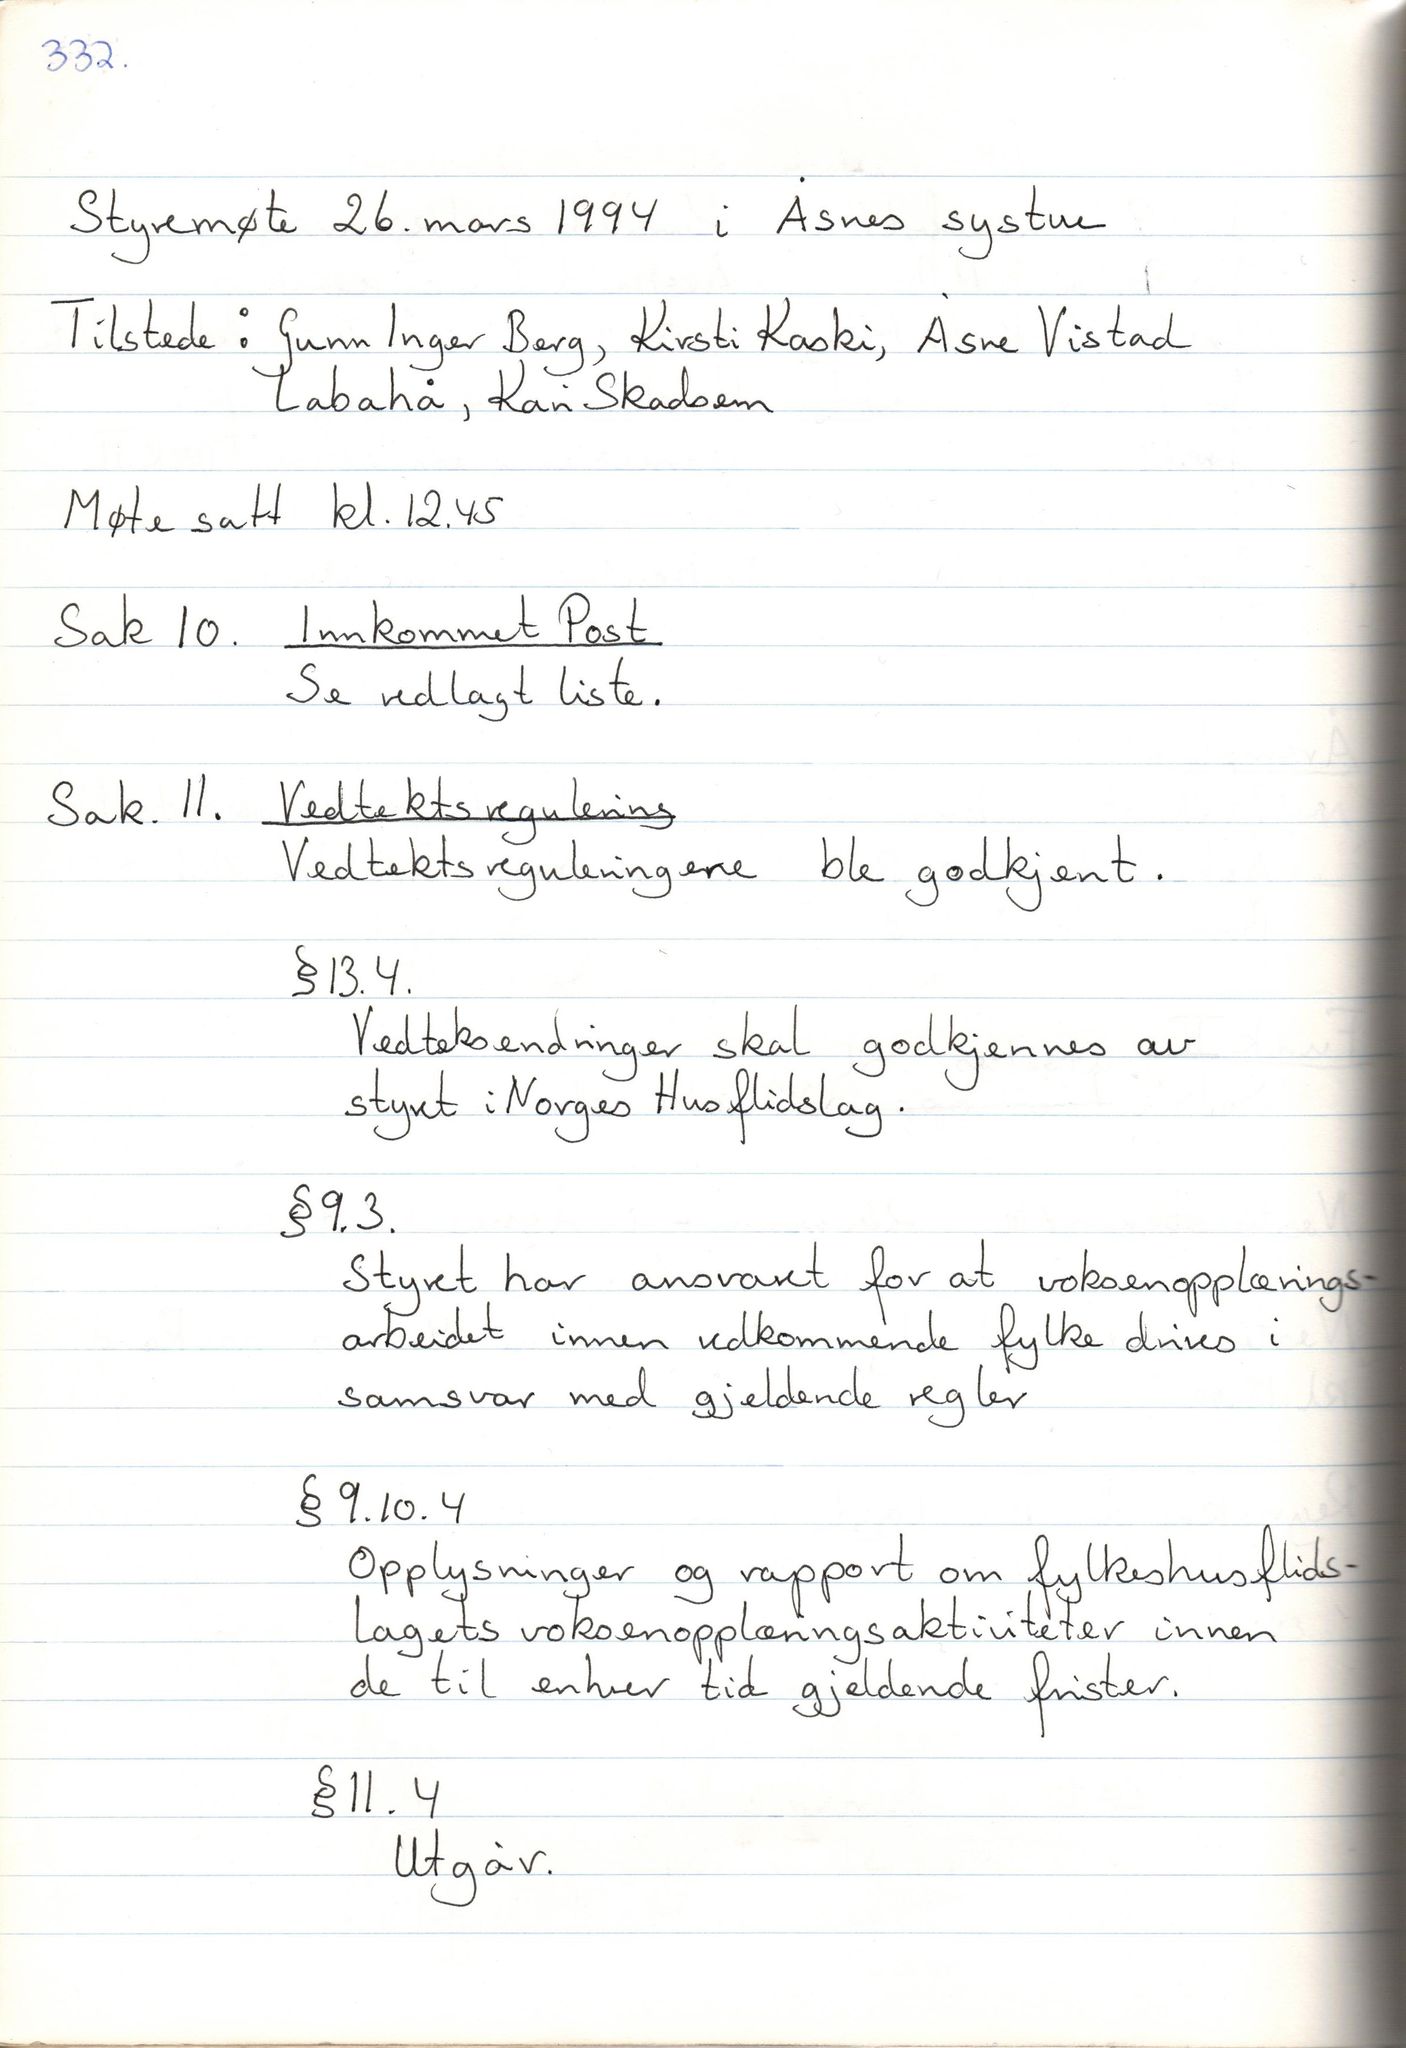 332.
Styremøte 26. mars 1994 i Åsnes systue
Tilstede: Gunn Inger Berg, Kirsti Kaski, Åsne Vistad
Labahå, Kari Skadsem
Møte satt kl. 12.45
Sak 10. Innkommet Post
Se vedlagt liste.
Sak. 11. Vedtektsregulering
Vedtektsreguleringene ble godkjent.
§ 13.4.
Vedteksendringer skal godkjennes av
styret i Norges Husflidslag.
§ 9.3.
Styret har ansvaret for at voksenopplærings-
arbeidet innen vedkommende fylke drives i
samsvar med gjeldende regler
§ 9.10.4
Opplysninger og rapport om fylkeshusflids-
lagets voksenopplæringsaktiviteter innen
de til enhver tid gjeldende frister.
§ 11.4
Utgår.